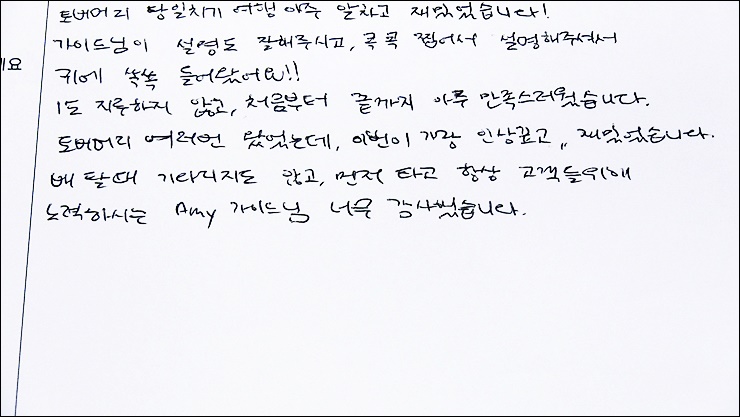 토버머리 당일치기 여행 아주 알차고 재밌었습니다!
가이드님이 설명도 잘해주시고, 콕콕 찝어서 설명해주셔서
게요
귀에 쏙쏙 들어왔어요!!
1도 지루하지 않고, 처음부터 끝까지 아주 만족스러웠습니다.
토버머리 여러번 왔었는데, 이번이 가장 인상깊고,, 재밌었습니다.
배 탈때 기다리지도 않고, 먼저 타고 항상 고객들위해
노력하시는 Amy 가이드님 너무 감사했습니다.